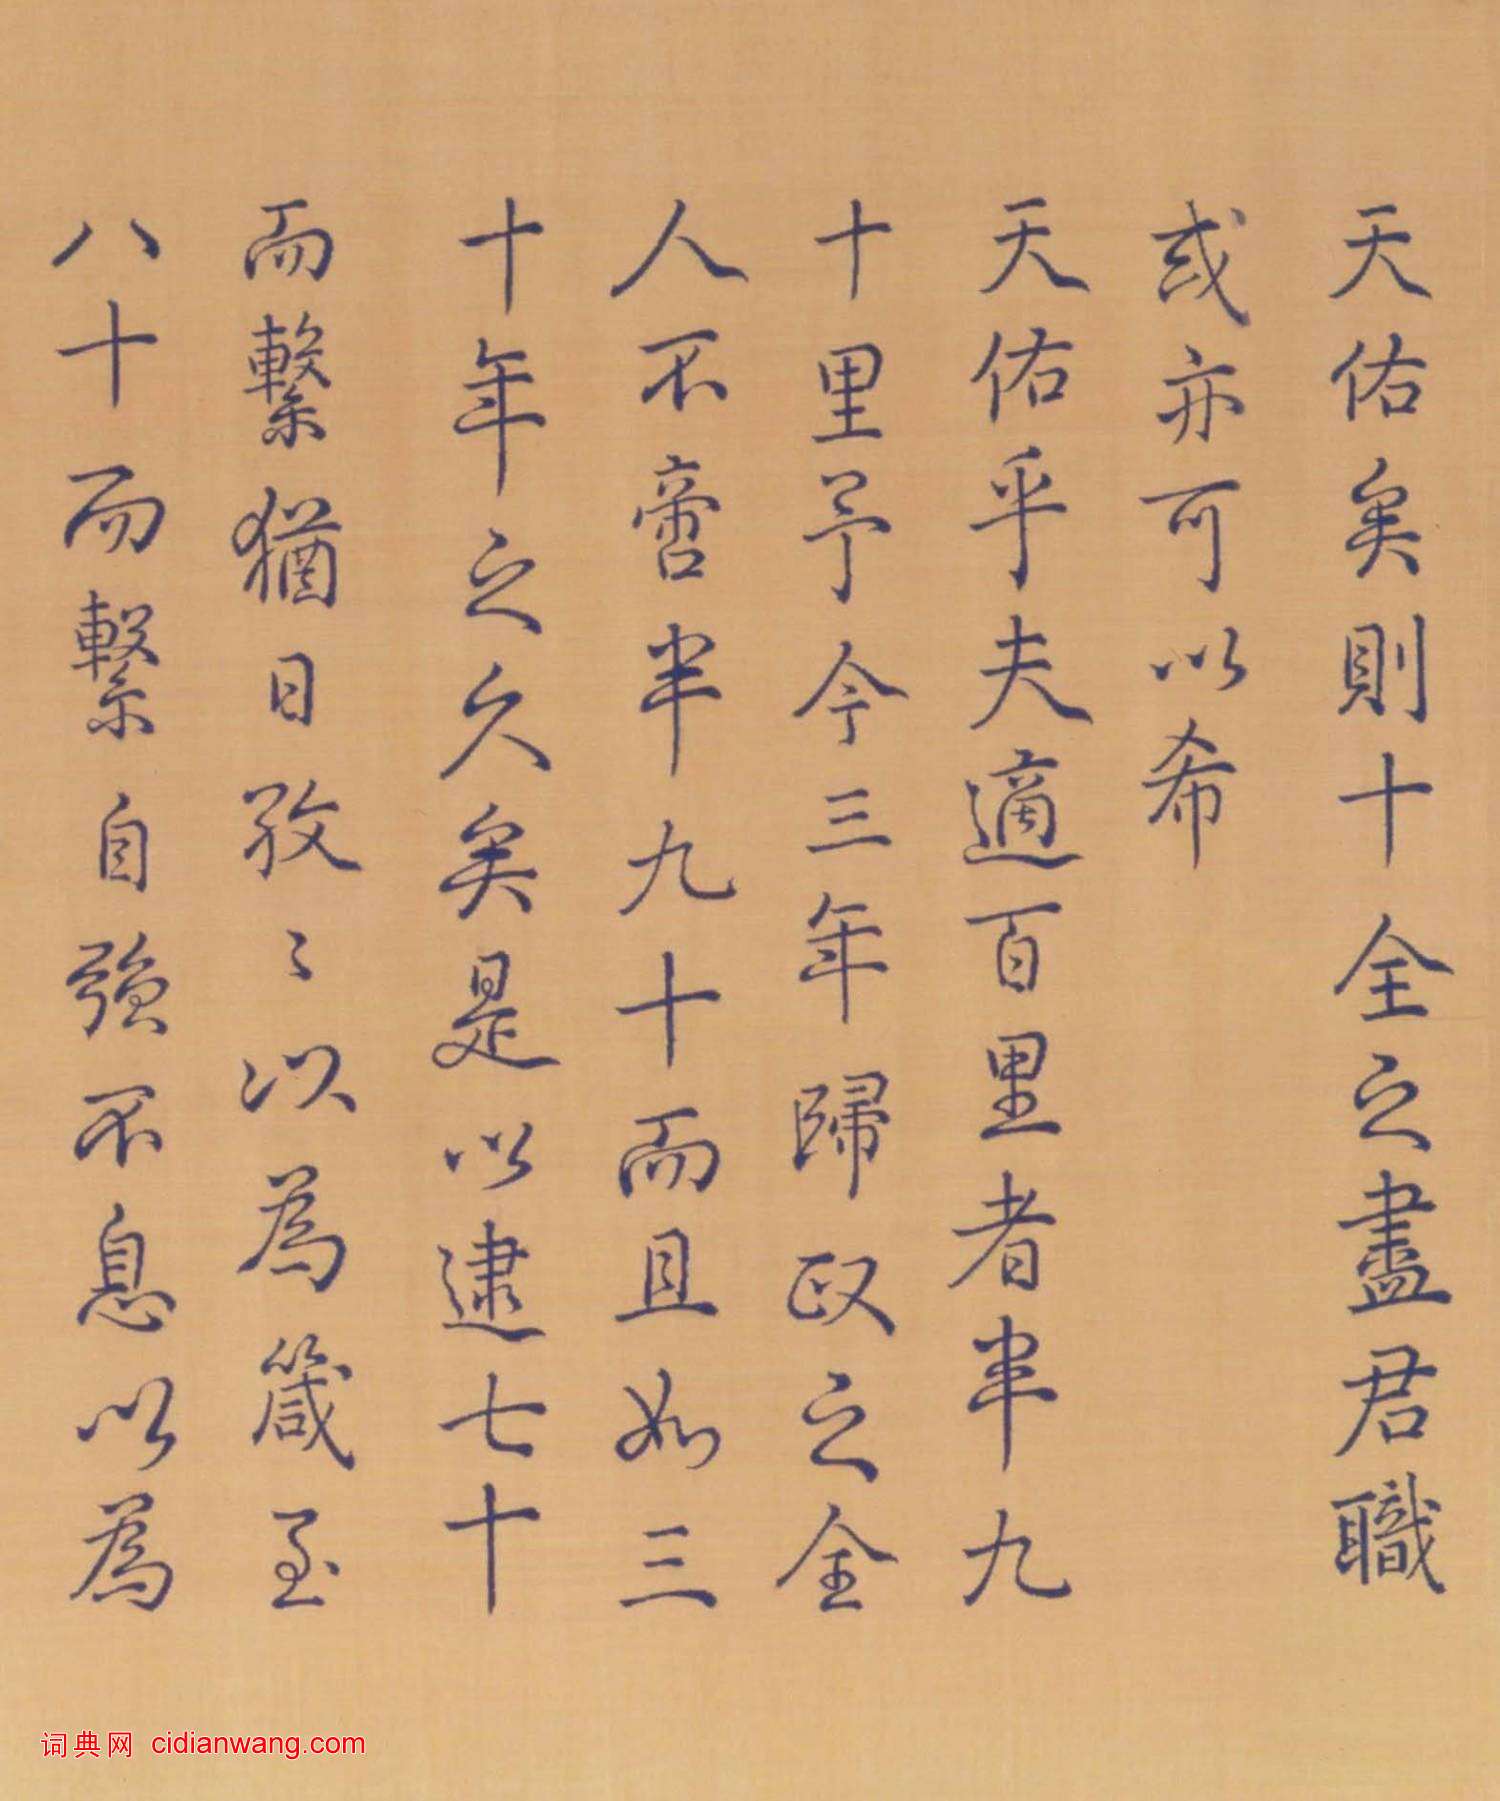 天佑矣則十全之盡君職
或亦可以希
天佑乎夫適百里者半九
十里予今三年歸政之全
人不啻半九十而且如三
十年之久矣是以逮七十
而繫猶日孜〻以為箴至
八十而繫自強不息以為
词典网 cidianwang.com